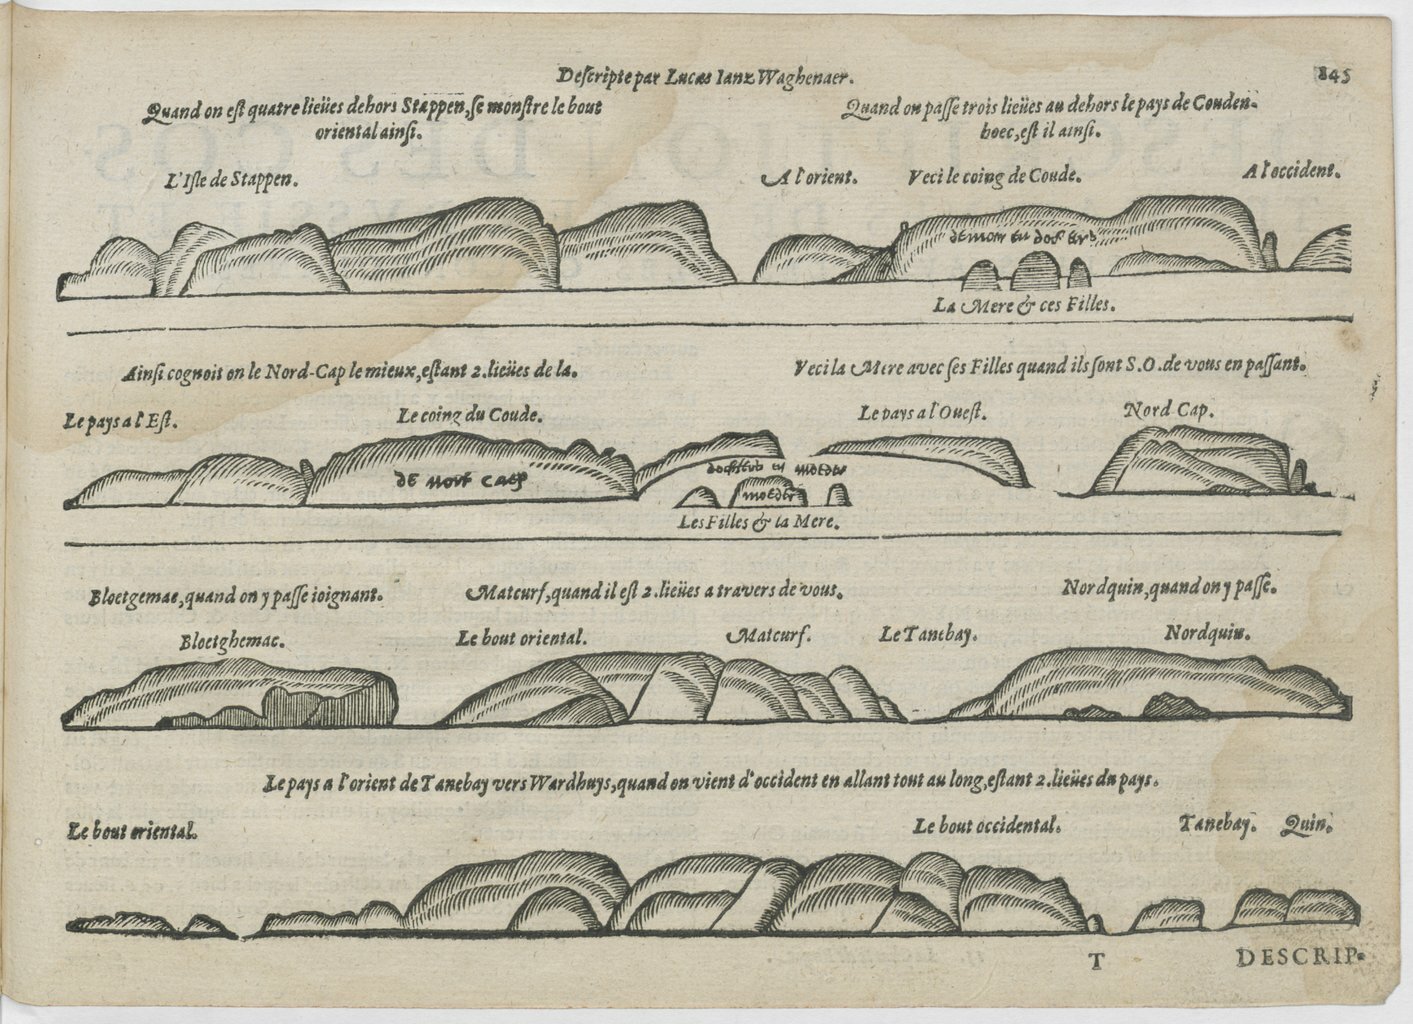 Deſcripte par Lucas Ianz Waghenaer.
845
Quand on eſt quatre lieües dehors Stappen, ſe monſtre le bout
oriental ainſi.
Quand on paſſe trois lieües au dehors le pays de Couden-
hoec, eſt il ainſi.
L'Iſle de Stappen.
A l'orient.
Veci le coing de Coude.
A l'occident.
La Mere & ces Filles.
Ainſi cognoit on le Nord-Cap le mieux, eſtant 2. lieües de la.
Veci la Mere avec ſes Filles quand ils ſont S.O. de vous en paſſant.
Le pays a l'Eſt.
Le coing du Coude.
Le pays a l'Oueſt.
Nord Cap.
de nort caep
moeder
Les Filles & la Mere.
Bloetgemae, quand on y paſſe ioignant.
Matcurf, quand il eſt 2. lieües a travers de vous.
Nordquin, quand on y paſſe.
Bloetghemae.
Le bout oriental.
Matcurf.
Le Tanebay.
Nordquin.
Le pays a l'orient de Tanebay vers Wardhuys, quand on vient d'occident en allant tout au long, eſtant 2. lieües du pays.
Le bout oriental.
Le bout occidental.
Tanebay.
Quin.
T
DESCRIP-